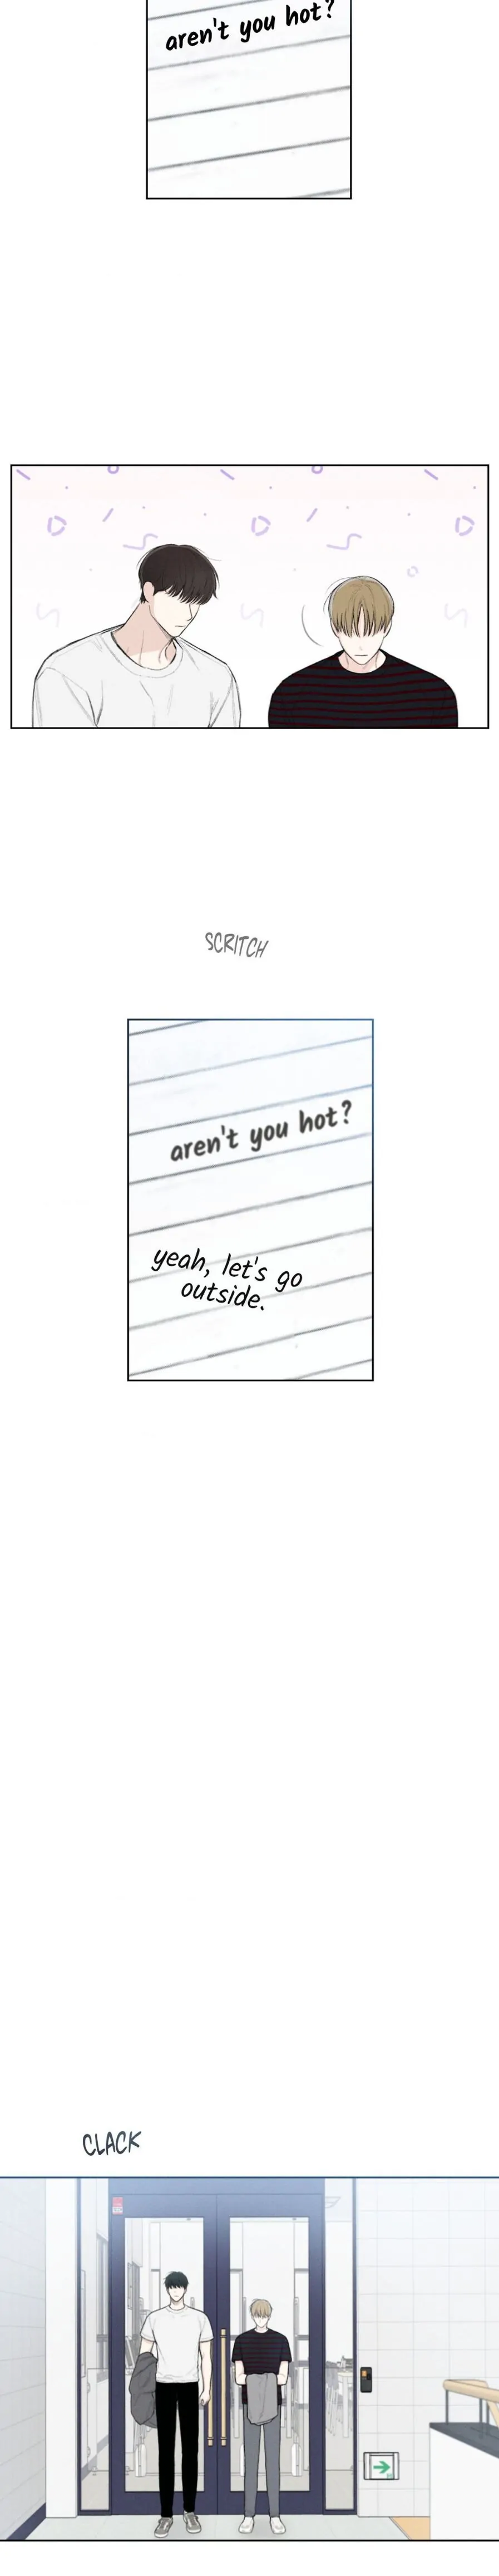 aren't you hot?
SCRITCH
aren't you hot?
yeah, let's go
outside.
CLACK